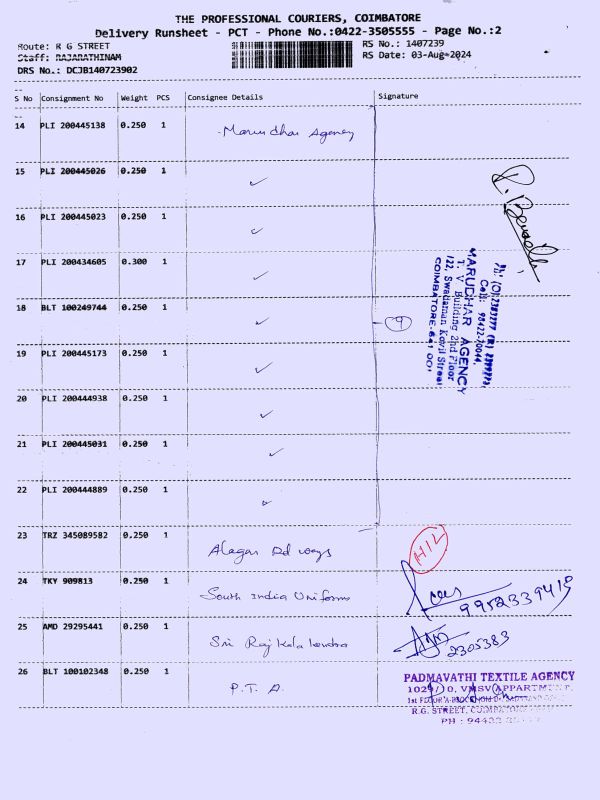 THE PROFESSIONAL COURIERS, COIMBATORE
Delivery Runsheet - PCT - Phone No.:0422-3505555 - Page No.:2
Route: R G STREET RS No.: 1407239
Staff: RAJARATHINAM RS Date: 03-Aug-2024
DRS No.: DCJB140723902
S No Consignment No Weight PCS Consignee Details Signature
14 PLI 200445138 0.250 1 Marudhar Agency
15 PLI 200445026 0.250 1 ✓
16 PLI 200445023 0.250 1 ✓
17 PLI 200434605 0.300 1 ✓
18 BLT 100249744 0.250 1 ✓ 9
19 PLI 200445173 0.250 1 ✓
20 PLI 200444938 0.250 1 ✓
21 PLI 200445031 0.250 1 ✓
22 PLI 200444889 0.250 1 ✓
MARUDHAR AGENCY
T. V. Building 2nd Floor
122, Swadaman Kovil Street
COIMBATORE-641 001
Cell: 98422-70044,
23 TRZ 345089582 0.250 1 Alagar Rd ways HIL
24 TKY 909813 0.250 1 South India Uniforms 9952339415
25 AMD 29295441 0.250 1 Sri Raj Kala kendra 2305383
26 BLT 100102348 0.250 1 P.T. A.
PADMAVATHI TEXTILE AGENCY
VMSV APPARTMENT,
1st FLOOR
R.G. STREET, COIMBATORE
PH : 94432